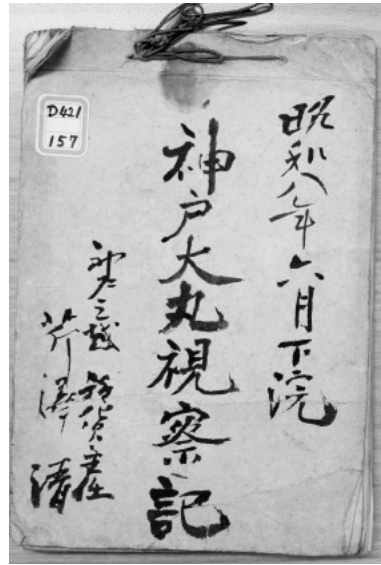 D421
157
昭和八年六月下浣
神戸大丸視察記
神戸三越 雑貨
芹澤 清